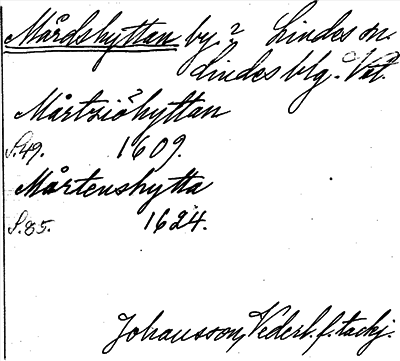 Mårdshyttan by? Lindes sn
Lindes blg. Vstl.
Mårtsiöhyttan
S.49. 1609.
Mårtenshytta
S.85. 1624.
Johansson, Vederl. f. tackj.